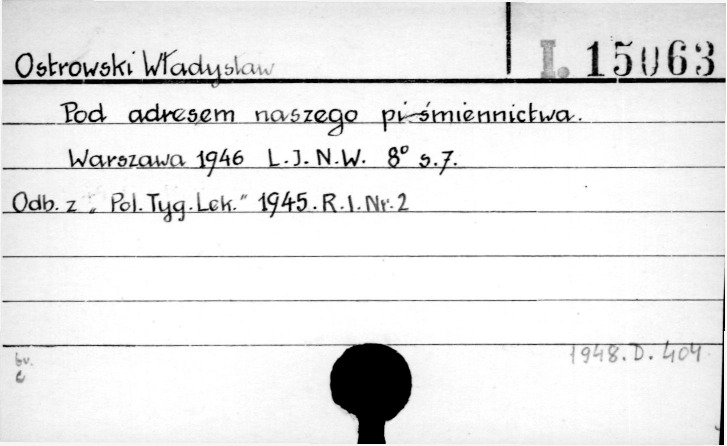 Ostrowski Władysław I. 15063
Pod adresem naszego piśmiennictwa.
Warszawa 1946 L.J.N.W. 8° s.7.
Odb. z „Pol. Tyg. Lek.” 1945. R.I. Nr. 2
1948. D. 404
bv.
c